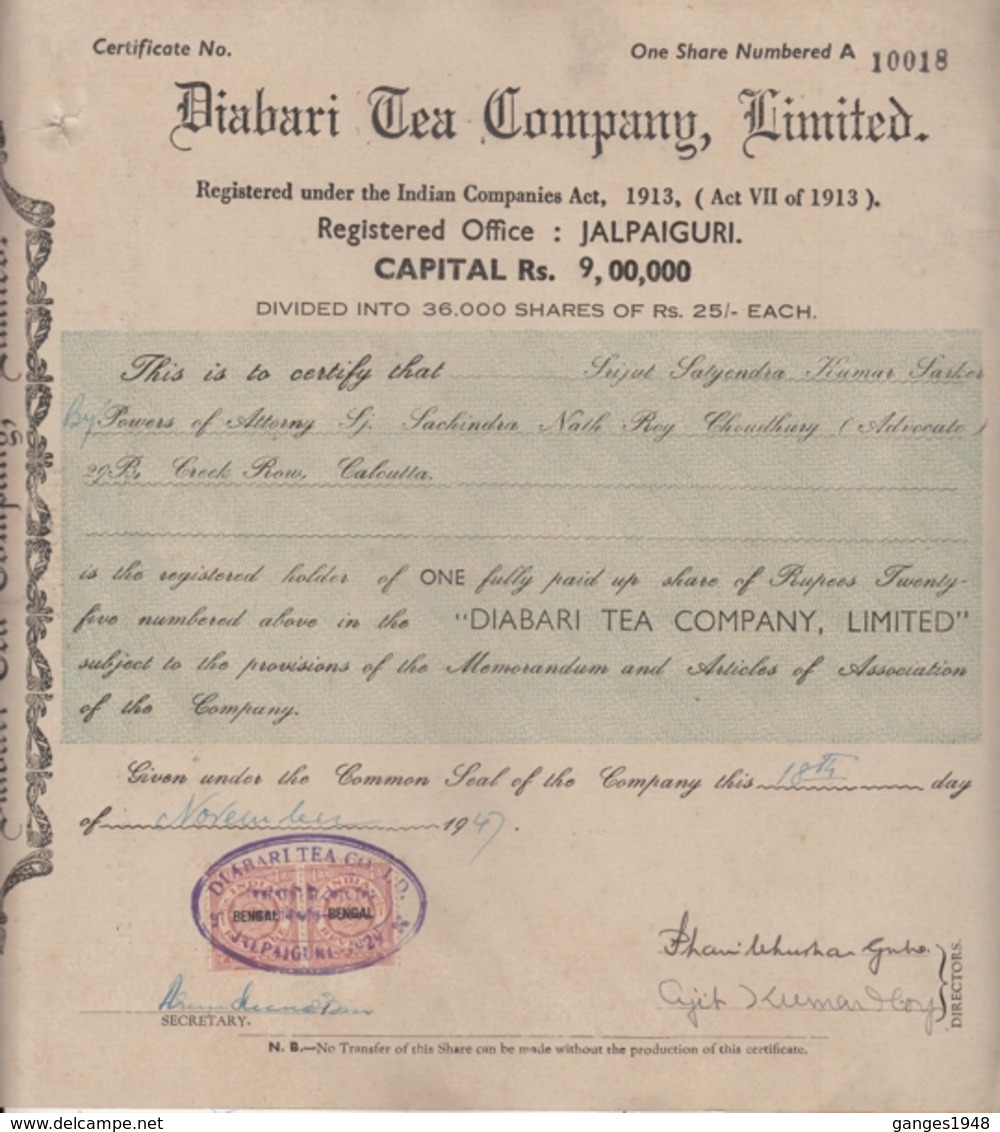 Certificate No.
One Share Numbered A 10018
Diabari Tea Company, Limited.
Registered under the Indian Companies Act, 1913, ( Act VII of 1913 ).
Registered Office : JALPAIGURI.
CAPITAL Rs. 9,00,000
DIVIDED INTO 36.000 SHARES OF Rs. 25/- EACH.
This is to certify that Srijut Satyendra Kumar Sarker
By Powers of Attorny Sj. Sachindra Nath Roy Choudhury ( Advocate )
29B, Creek Row, Calcutta.
is the registered holder of ONE fully paid up share of Rupees Twenty-
five numbered above in the "DIABARI TEA COMPANY, LIMITED"
subject to the provisions of the Memorandum and Articles of Association
of the Company.
Given under the Common Seal of the Company this 18th day
of November 1947.
DIABARI TEA CO. LD.
BENGAL BENGAL
JALPAIGURI
Phani Bhusan Guha.
Ajit Kumar Roy
DIRECTORS.
SECRETARY.
N. B.—No Transfer of this Share can be made without the production of this certificate.
www.delcampe.net
ganges1948